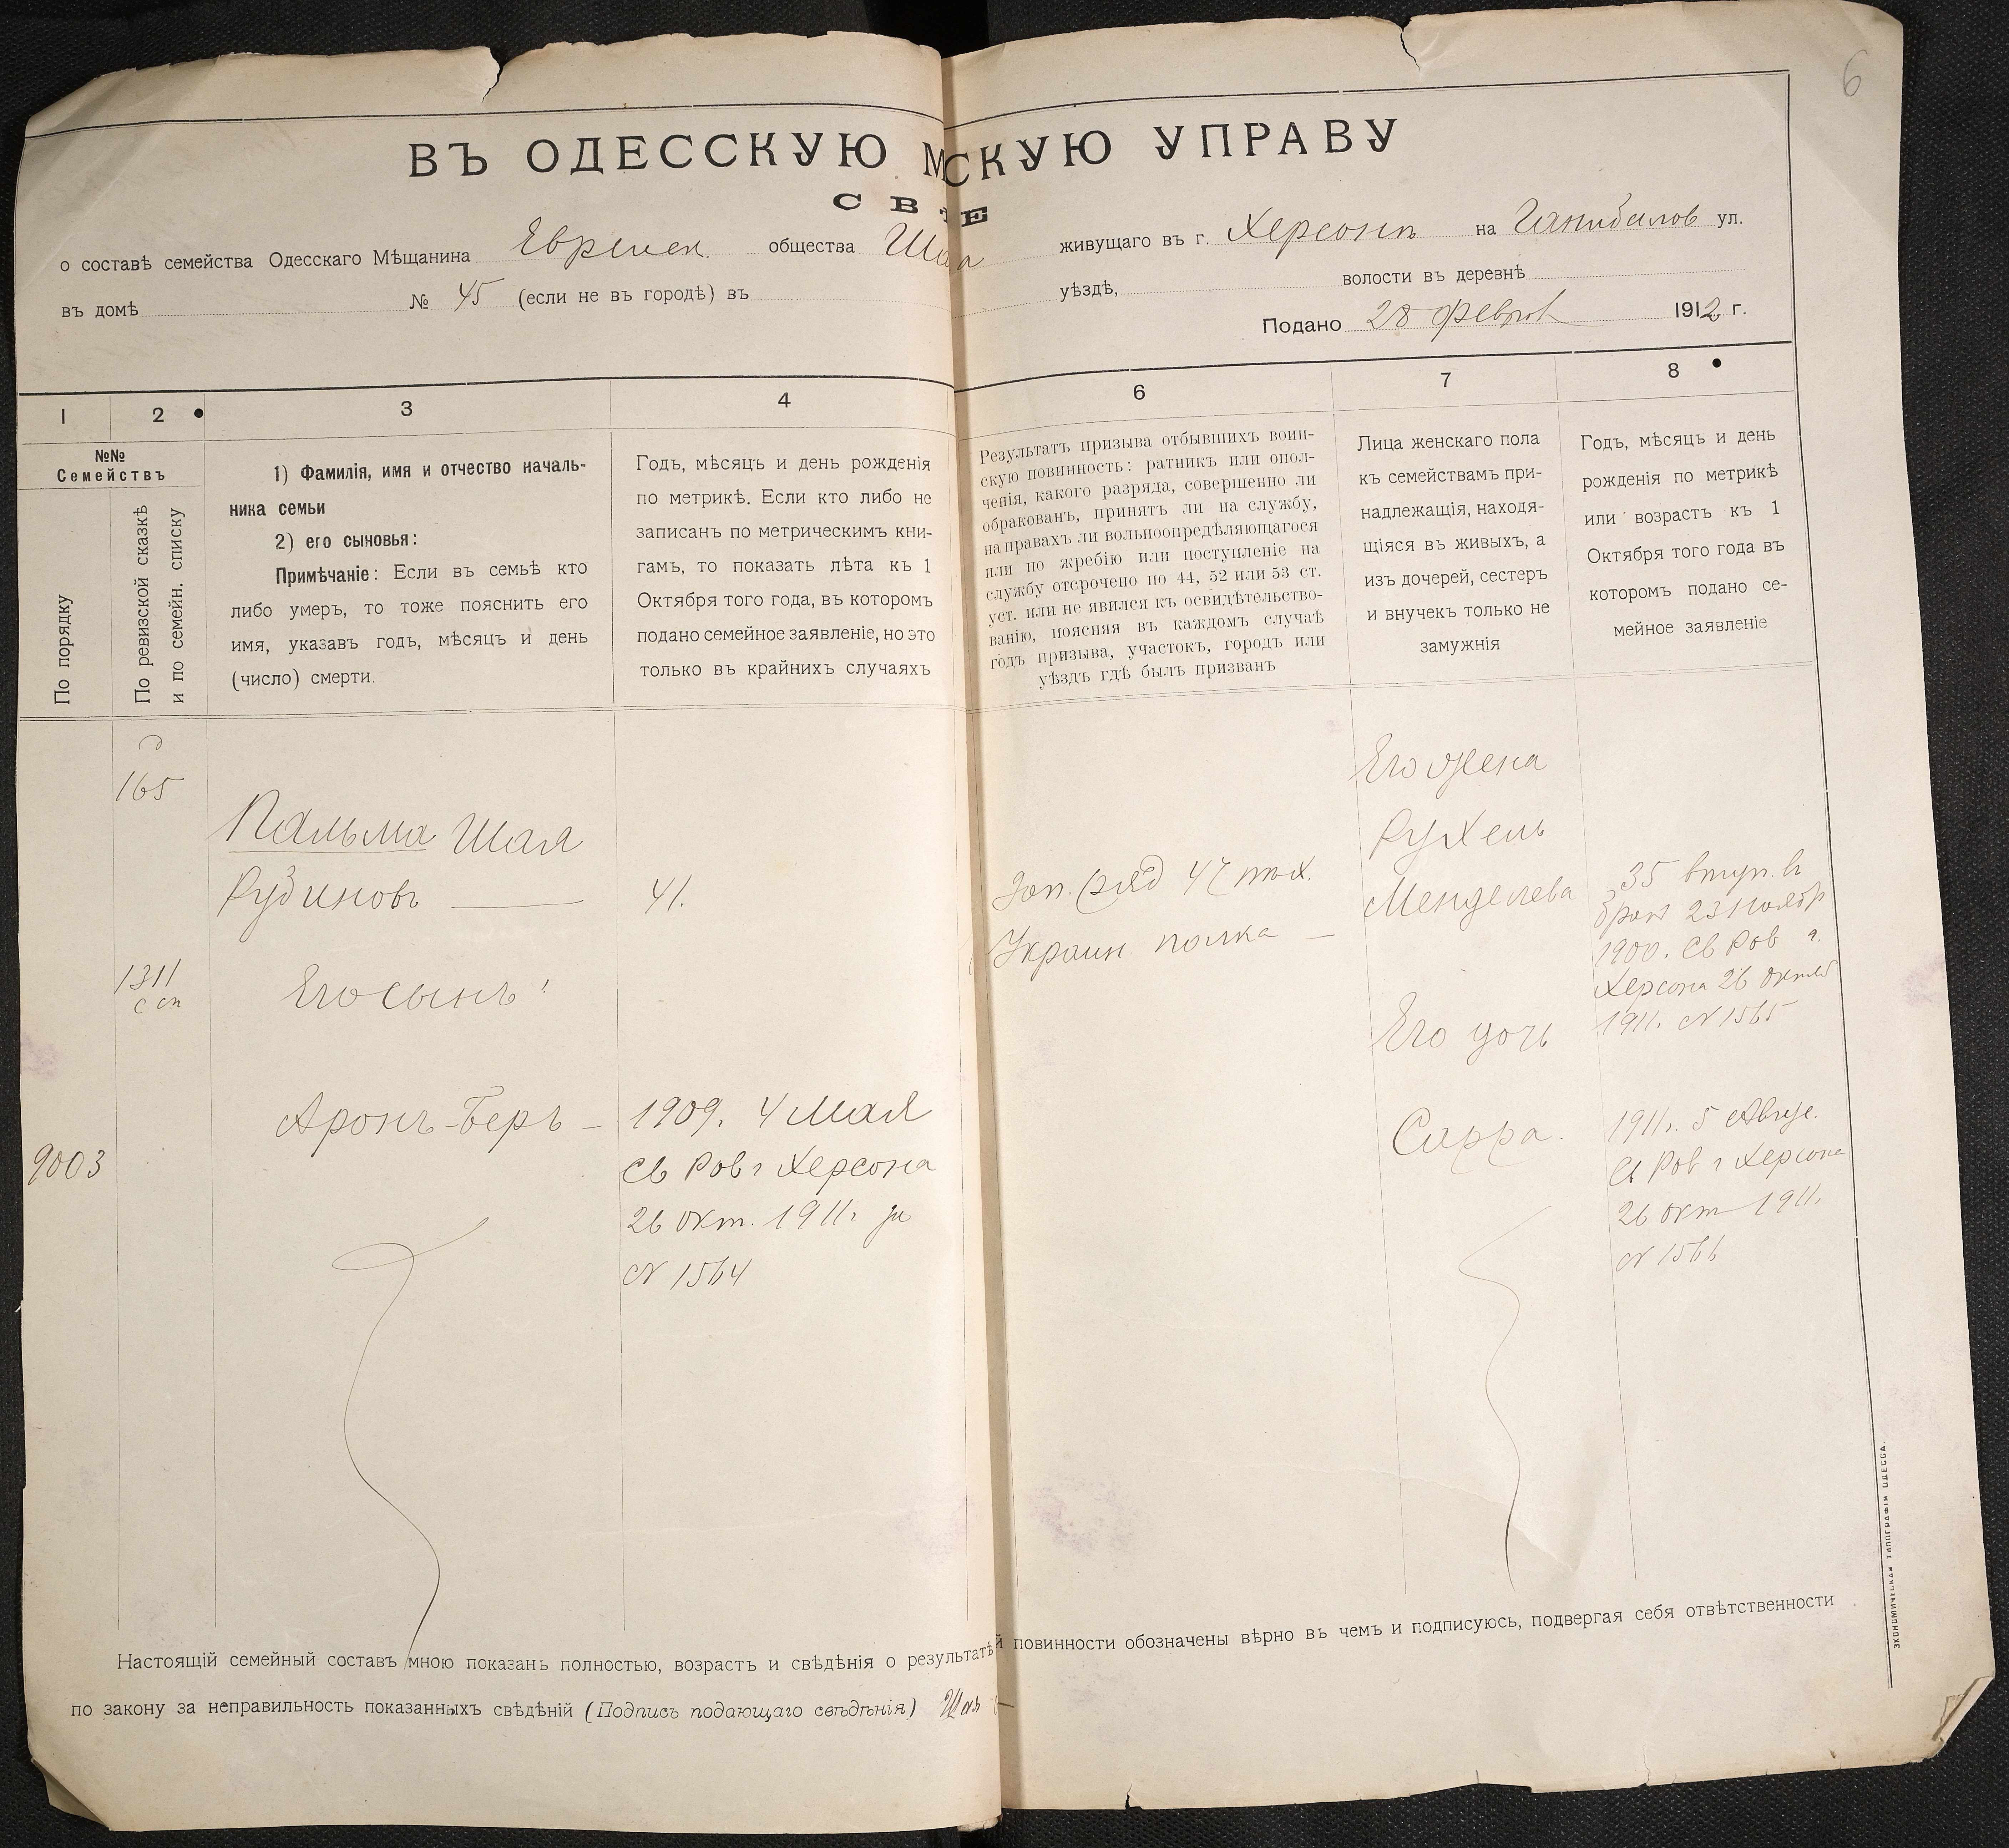 6
ВЪ ОДЕССКУЮ М СКУЮ УПРАВУ
СВѢ Е
о составѣ семейства Одесскаго Мѣщанина Евреиск. общества Шая живущаго въ г. Херсонъ на Ганибалов ул.
въ домѣ № 45 (если не въ городѣ) въ уѣздѣ, волости въ деревнѣ
Подано 28 Феврал 1912 г.
1 2 3 4 6 7 8
№№
Семействъ
По порядку
По ревизской сказкѣ
и по семейн. списку
1) Фамилія, имя и отчество началь-
ника семьи
2) его сыновья:
Примѣчаніе: Если въ семьѣ кто
либо умеръ, то тоже пояснить его
имя, указавъ годъ, мѣсяцъ и день
(число) смерти.
Годъ, мѣсяцъ и день рожденія
по метрикѣ. Если кто либо не
записанъ по метрическимъ кни-
гамъ, то показать лѣта къ 1
Октября того года, въ которомъ
подано семейное заявленіе, но это
только въ крайнихъ случаяхъ
Результатъ призыва отбывшихъ воин-
скую повинность: ратникъ или опол-
ченія, какого разряда, совершенно ли
обракованъ, принятъ ли на службу,
на правахъ ли вольноопредѣляющагося
или по жребію или поступленіе на
службу отсрочено по 44, 52 или 53 ст.
уст. или не явился къ освидѣтельство-
ванію, поясняя въ каждомъ случаѣ
годъ призыва, участокъ, городъ или
уѣздъ гдѣ былъ призванъ
Лица женскаго пола
къ семействамъ при-
надлежащія, находя-
щіяся въ живыхъ, а
изъ дочерей, сестеръ
и внучекъ только не
замужнія
Годъ, мѣсяцъ и день
рожденія по метрикѣ
или возрастъ къ 1
Октября того года въ
которомъ подано се-
мейное заявленіе
165
1311
с сп
9003
Пальма Шая
Рувиновъ
Его сынъ:
Аронъ-Беръ –
41.
1909. 4 Мая
Св Рав г Херсона
26 Окт. 1911г за
№ 1564
Зап. ряд 47 пѣх.
Украин. полка –
Его жена
Рухель
Менделева
Его дочь
Сарра.
35 вступ. въ
бракъ 23 Ноября
1900. Св Рав г.
Херсона 26 Октяб
1911. № 1565
1911г. 5 Авгус.
Св Рав г Херсона
26 Окт 1911.
№ 1566
Настоящій семейный составъ мною показанъ полностью, возрастъ и свѣдѣнія о результатѣ й повинности обозначены вѣрно въ чемъ и подписуюсь, подвергая себя отвѣтственности
по закону за неправильность показанныхъ свѣдѣній (Подпись подающаго свѣдѣнія) Шая
ЭКОНОМИЧЕСКАЯ ТИПОГРАФІЯ ОДЕССА.